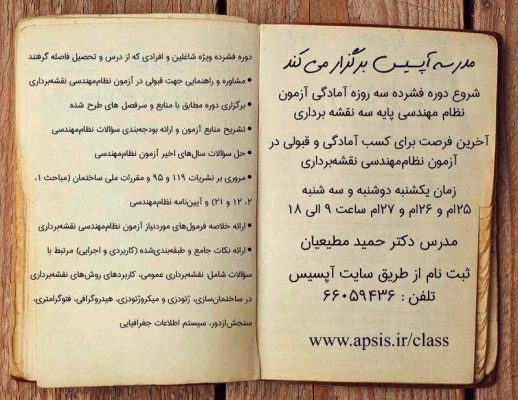 مدرسه آپسیس برگزار می کند
شروع دوره فشرده سه روزه آمادگی آزمون
نظام مهندسی پایه سه نقشه برداری
آخرین فرصت برای کسب آمادگی و قبولی در
آزمون نظام‌مهندسی نقشه‌برداری
زمان یکشنبه دوشنبه و سه شنبه
۲۵ام و ۲۶ام و ۲۷ام ساعت ۹ الی ۱۸
مدرس دکتر حمید مطیعیان
ثبت نام از طریق سایت آپسیس
تلفن : ۶۶۰۵۹۴۳۶
www.apsis.ir/class
دوره فشرده ویژه شاغلین و افرادی که از درس و تحصیل فاصله گرفتند
• مشاوره و راهنمایی جهت قبولی در آزمون نظام‌مهندسی نقشه‌برداری
• برگزاری دوره مطابق با منابع و سرفصل های طرح شده
• تشریح منابع آزمون و ارائه بودجه‌بندی سؤالات نظام‌مهندسی
• حل سؤالات سال‌های اخیر آزمون نظام‌مهندسی
• مروری بر نشریات ۱۱۹ و ۹۵ و مقررات ملی ساختمان (مباحث ۱،
۲، ۱۲ و ۲۱) و آیین‌نامه نظام‌مهندسی
• ارائه خلاصه فرمول‌های موردنیاز آزمون نظام‌مهندسی نقشه‌برداری
• ارائه نکات جامع و طبقه‌بندی‌شده (کاربردی و اجرایی) مرتبط با
سؤالات شامل: نقشه‌برداری عمومی، کاربردهای روش‌های نقشه‌برداری
در ساختمان‌سازی، ژئودزی و میکروژئودزی، هیدروگرافی، فتوگرامتری،
سنجش‌ازدور، سیستم اطلاعات جغرافیایی